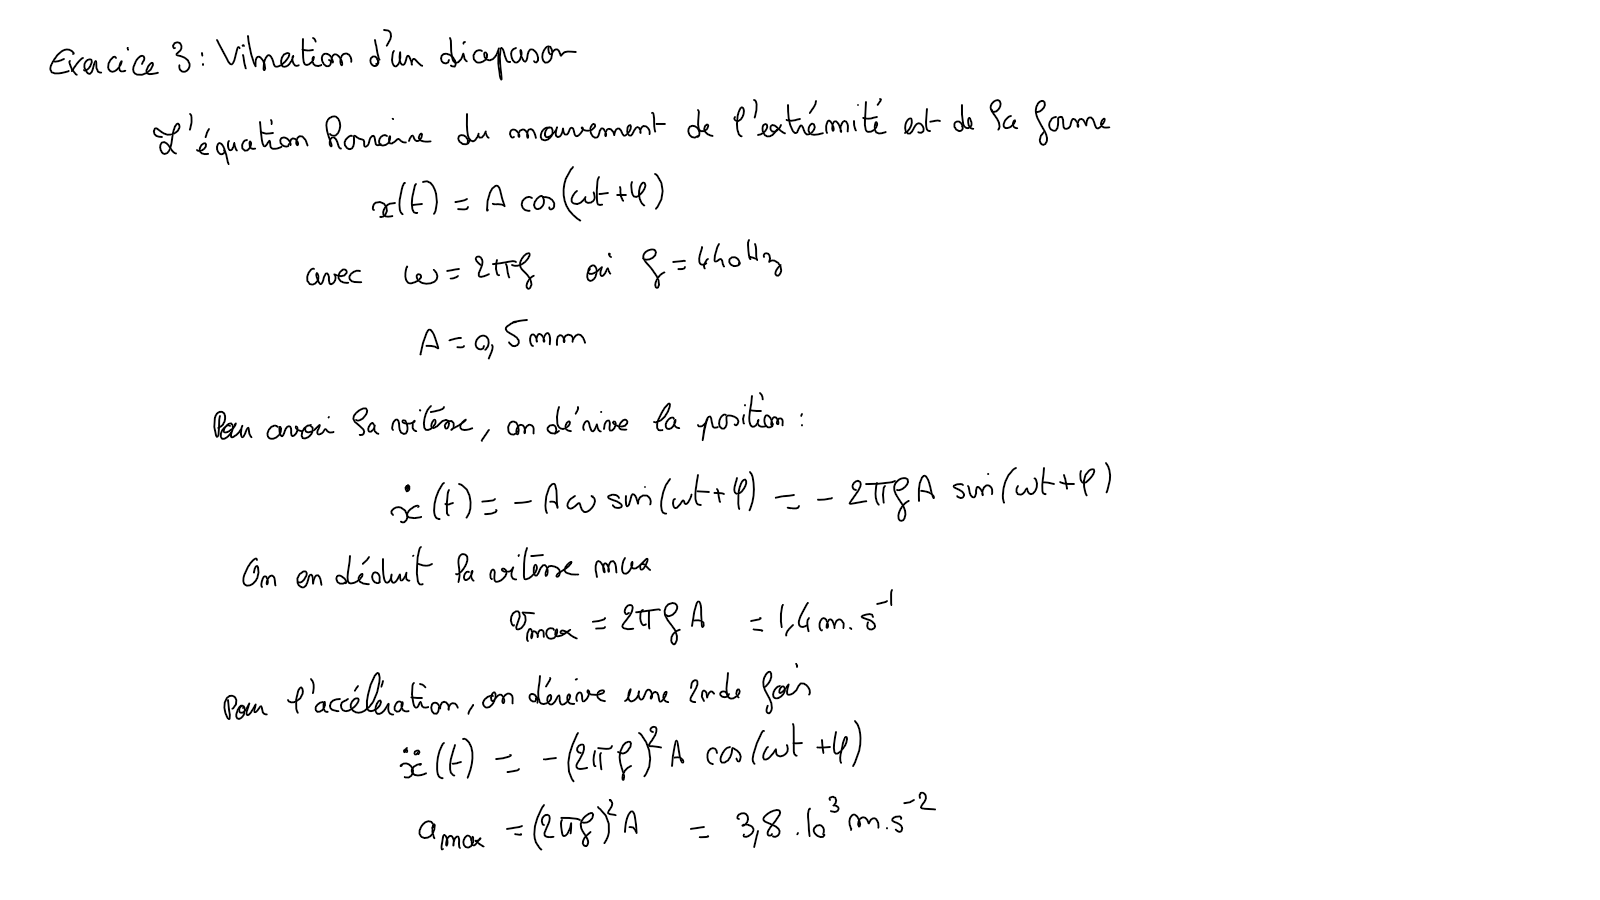 Exercice 3 : Vibration d'un diapason
L'équation horaire du mouvement de l'extrémité est de la forme
x(t) = A cos(ωt + φ)
avec ω = 2πf où f = 440 Hz
A = 0,5 mm
Pour avoir la vitesse, on dérive la position :
ẋ(t) = - A ω sin(ωt + φ) = - 2πf A sin(ωt + φ)
On en déduit la vitesse max
v_max = 2πf A = 1,4 m.s⁻¹
Pour l'accélération, on dérive une 2nde fois
ẍ(t) = - (2πf)² A cos(ωt + φ)
a_max = (2πf)² A = 3,8 . 10³ m.s⁻²